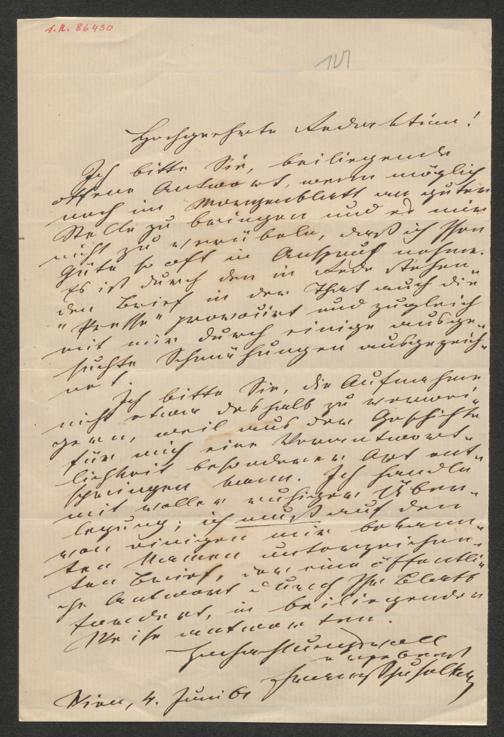 I.N. 86430
141
Hochgeehrte Redaktion!
Ich bitte Sie, beiliegende
offene Antwort, wenn möglich
noch im Morgenblatt an guter
Stelle zu bringen und es mir
nicht zu verübeln, daß ich Ihre
Güte so oft in Anspruch nehme.
Es ist durch den in Rede stehen-
den Brief in der That auch die
"Presse" provozirt und zugleich
mit mir durch einige ausge-
suchte Schmähungen ausgezeich-
net.
Ich bitte Sie, die Aufnahme
nicht etwa deshalb zu verwei-
gern, weil aus der Geschichte
für mich eine Verantwort-
lichkeit besonderer Art ent-
springen kann. Ich handle
mit voller ruhiger Über-
legung; ich muß auf den
von einigen mir bekann-
ten Namen unterzeichne-
ten Brief, der eine öffentli-
che Antwort durch Ihr Blatt
fordert, in beiliegender
Weise antworten.
Hochachtungsvoll
ergebenst
Franz Schuselka
Wien, 4. Juni 61